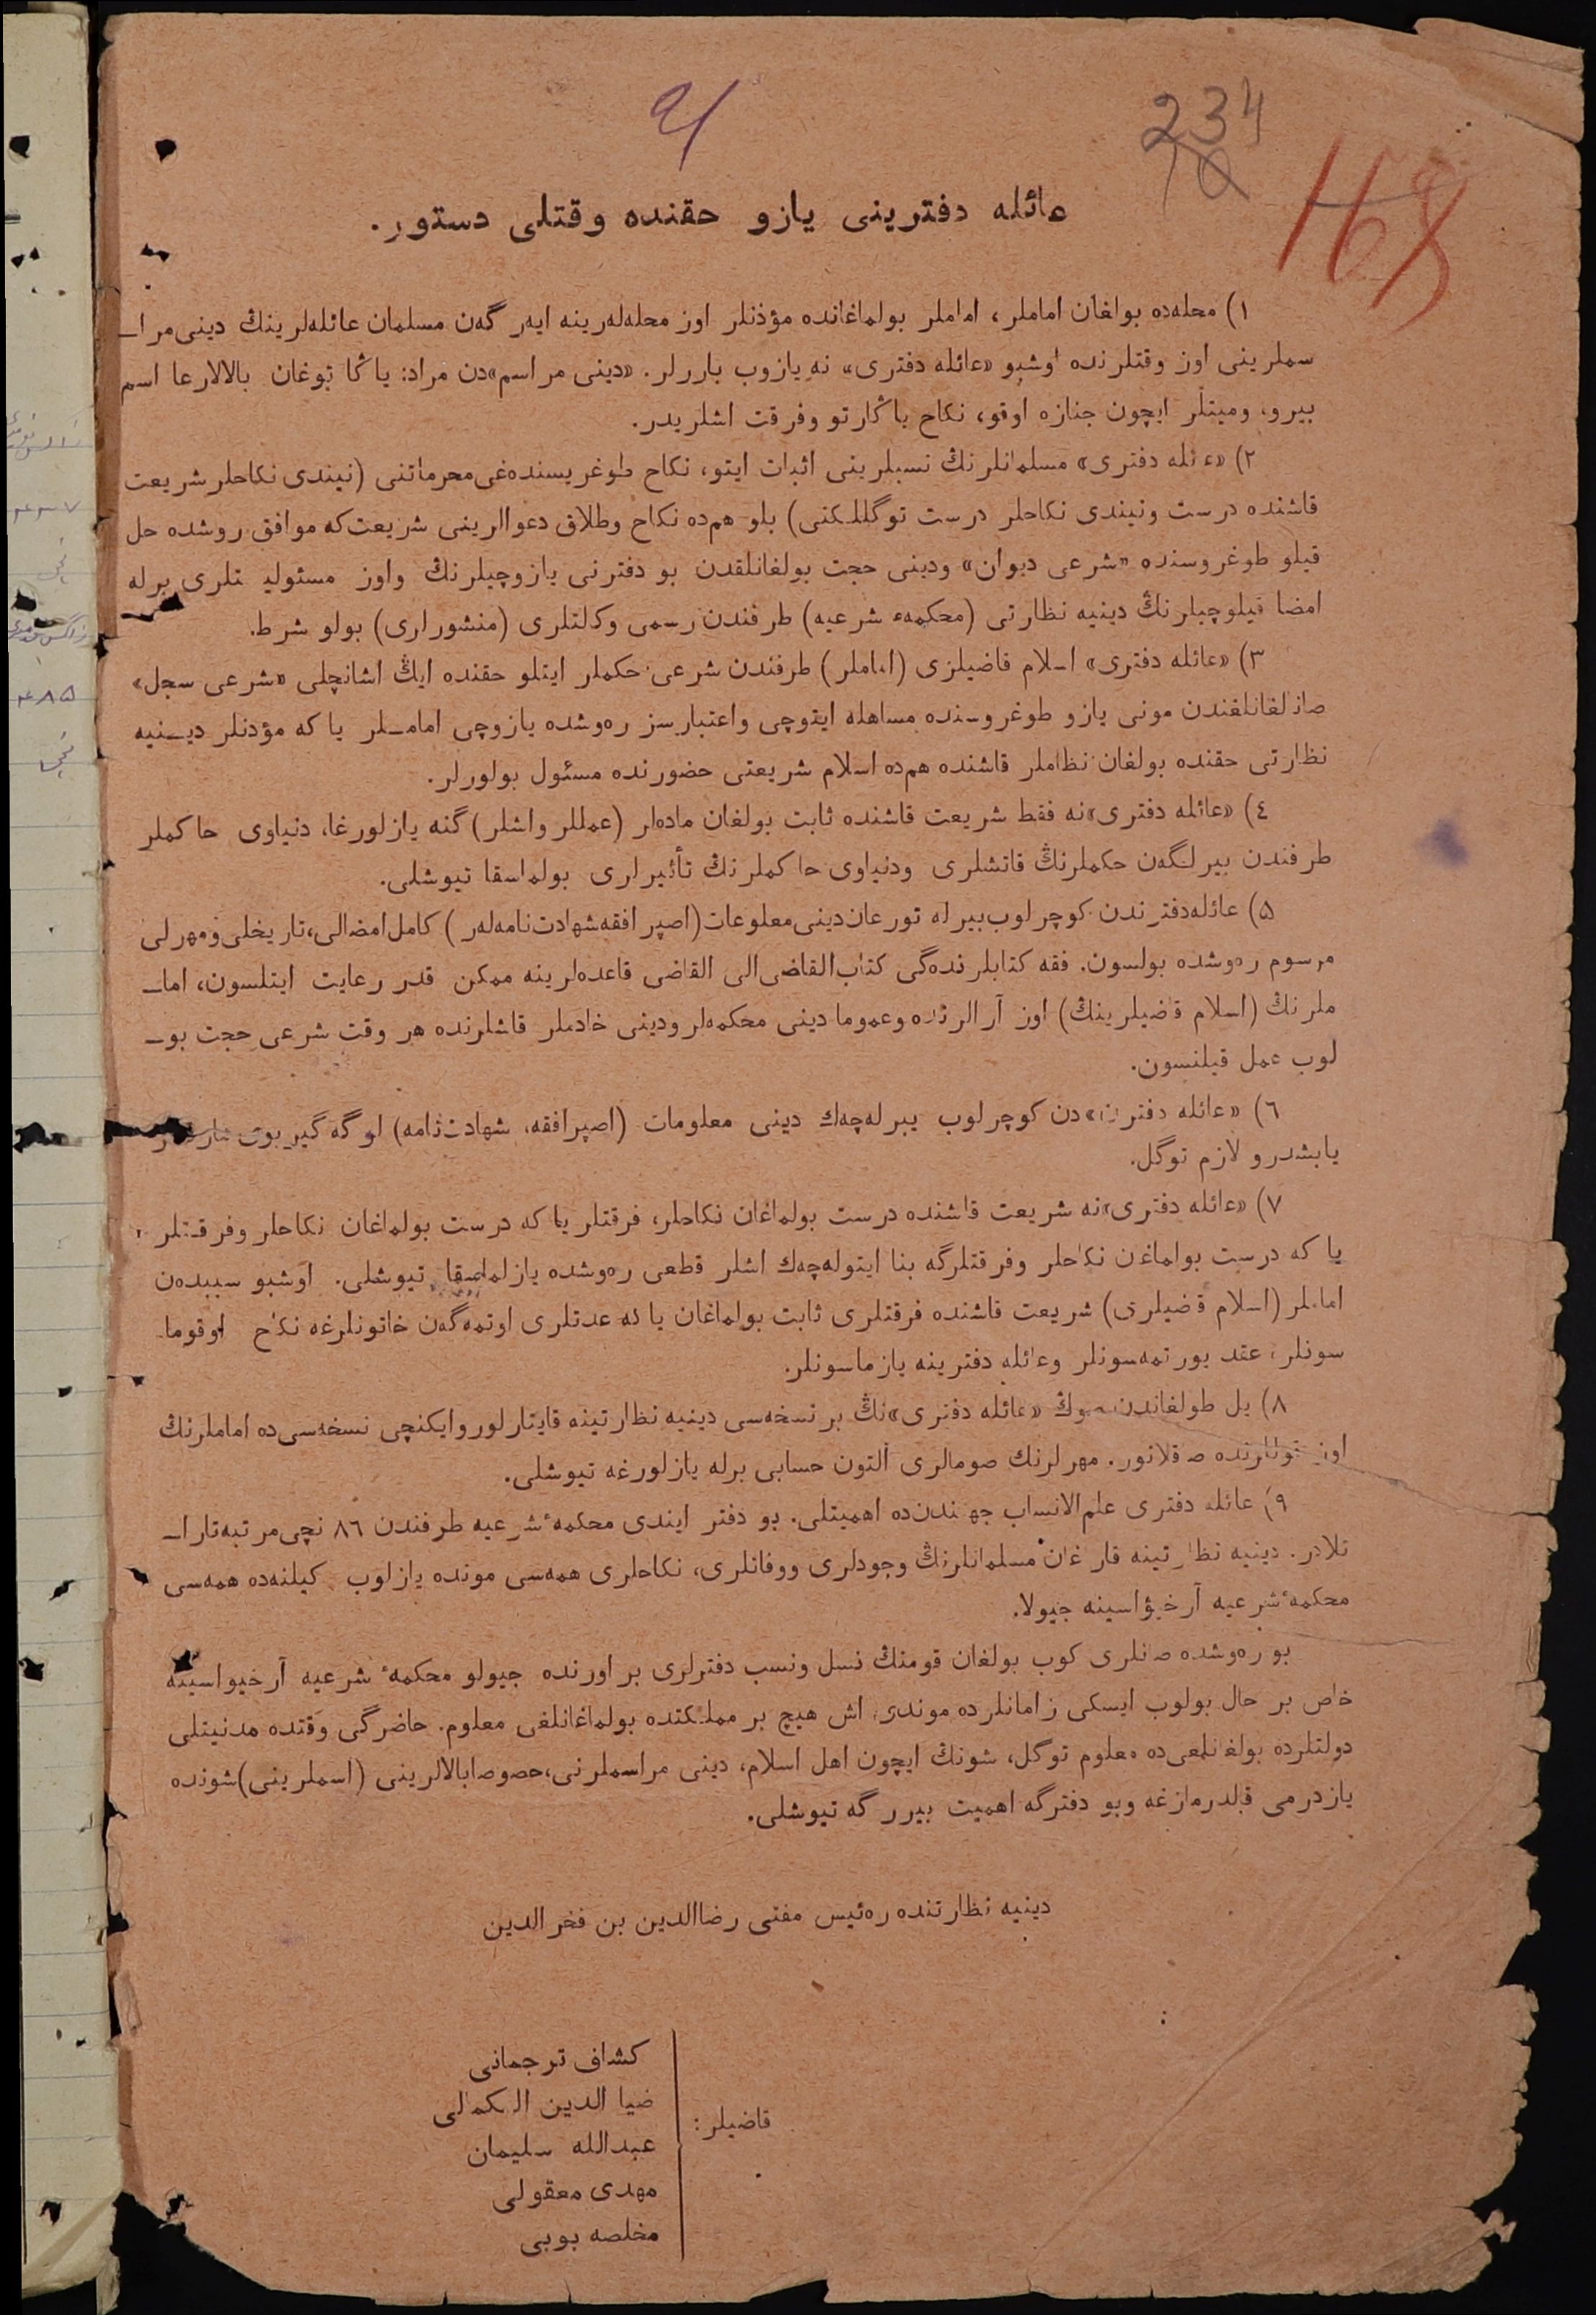 234
168
عائله دفترینی یازو حقنده وقتلی دستور.
۱) محله‌ده بولغان اماملر، اماملر بولماغانده مؤذنلر اوز محله‌لەرینه ایەرگەن مسلمان عائله‌لرینڭ دینی مراـ
سملرینی اوز وقتلرنده اوشبو «عائله دفتری» نه یازوب باررلر. «دینی مراسم»دن مراد: یاڭا توغان بالالارعا اسم
بیرو، ومیتلر ایچون جنازه اوقو، نکاح یاڭارتو وفرقت اشلریدر.
۲) «عائله دفتری» مسلمانلرنڭ نسبلرینی اثبات ایتو، نکاح طوغریسنده‌غی محرماتنی (نیندی نکاحلر شریعت
قاشنده درست ونیندی نکاحلر درست توگللکنی) بلو هم‌ده نکاح وطلاق دعوالرینی شریعت‌که موافق روشده حل
قیلو طوغروسنده «شرعی دیوان» ودینی حجت بولغانلقدن بو دفترنی یازوچیلرنڭ واوز مسئولیتلری برله
امضا قیلوچیلرنڭ دینیه نظارتی (محکمهء شرعیه) طرفندن رسمی وکالتلری (منشورلری) بولو شرط.
۳) «عائله دفتری» اسلام قاضیلری (اماملر) طرفندن شرعی حکملر ایتلو حقنده ایڭ اشانچلی «شرعی سجل»
صانالغانلغندن مونی یازو طوغروسنده مساهله ایتوچی واعتبارسز ره‌وشده یازوچی امامـلر یا که مؤذنلر دیـنیه
نظارتی حقنده بولغان نظاملر قاشنده هم‌ده اسلام شریعتی حضورنده مسئول بولورلر.
٤) «عائله دفتری»نه فقط شریعت قاشنده ثابت بولغان ماده‌لر (عمللر واشلر) گنه یازلورغا، دنیاوی حاکملر
طرفندن بیرلگەن حکملرنڭ قاتشلری ودنیاوی حاکملرنڭ تأثیرلری بولماسقا تیوشلی.
۵) عائله‌دفترندن کوچرلوب بیرله تورعان دینی معلوعات (اصپرافقه شهادت‌نامه‌لەر) کامل امضالی، تاریخلی ومهرلی
مرسوم ره‌وشده بولسون. فقه کتابلرنده‌گی کتاب‌القاضی الی القاضی قاعده‌لرینه ممکن قدر رعایت ایتلسون، اماـ
ملرنڭ (اسلام قاضیلرینڭ) اوز آرالرنده وعموما دینی محکمه‌لر ودینی خادملر قاشلرنده هر وقت شرعی حجت بوـ
لوب عمل قیلنسون.
٦) «عائله دفترن»دن کوچرلوب بیرله‌چەك دینی معلومات (اصپرافقه، شهادت‌نامه) لرگه گیربوی
یابشدرو لازم توگل.
۷) «عائله دفتری»نه شریعت قاشنده درست بولماغان نکاحلر، فرقتلر یا که درست بولماغان نکاحلر وفرقتلر
یا که درست بولماغن نکاحلر وفرقتلرگه بنا ایتوله‌چەك اشلر قطعی ره‌وشده یازلماسقا تیوشلی. اوشبو سببدەن
اماملر (اسلام قاضیلری) شریعت قاشنده فرقتلری ثابت بولماغان یا که عدتلری اوتمه‌گەن خاتونلرغه نکاح اوقوما
سونلر، عقد یورتمه‌سونلر وعائله دفترینه یازماسونلر.
۸) یل طولغاندن صوڭ «عائله دفتری»نڭ بر نسخه‌سی دینیه نظارتینه قایتارلور وایکنچی نسخه‌سی ده اماملرنڭ
اوز قوللرنده صقلانور. مهرلرنك صومالری آلتون حسابی برله یازلورغه تیوشلی.
۹) عائله دفتری علم‌الانساب جهتندن‌ده اهمیتلی. بو دفتر ایندی محکمهٔ شرعیه طرفندن ۸٦ نچی مرتبه تاراـ
تلادر. دینیه نظارتینه قارغان مسلمانلرنڭ وجودلری ووفاتلری، نکاحلری همه‌سی مونده یازلوب کیلنه‌ده همه‌سی
محکمهٔ شرعیه آرخیواسینه جیولا.
بو ره‌وشده صانلری کوب بولغان قومنڭ نسل ونسب دفترلری بر اورنده جیولو محکمهٔ شرعیه آرخیواسینه
خاص بر حال بولوب ایسکی زامانلرده موندی اش هیچ بر مملکتده بولماغانلغی معلوم. حاضرگی وقتده مدنیتلی
دولتلرده بولغانلغی‌ده معلوم توگل، شونڭ ایچون اهل اسلام، دینی مراسملرنی، حصوصا بالالرینی (اسملرینی) شونده
یازدرمی قالدرمازغه وبو دفترگه اهمیت بیررگه تیوشلی.
دینیه نظارتنده ره‌ئیس مفتی رضاالدین بن فخرالدین
قاضیلر:
کشاف ترجمانی
ضیا الدین الکمالی
عبدالله سلیمان
مهدی معقولی
مخلصه بوبی